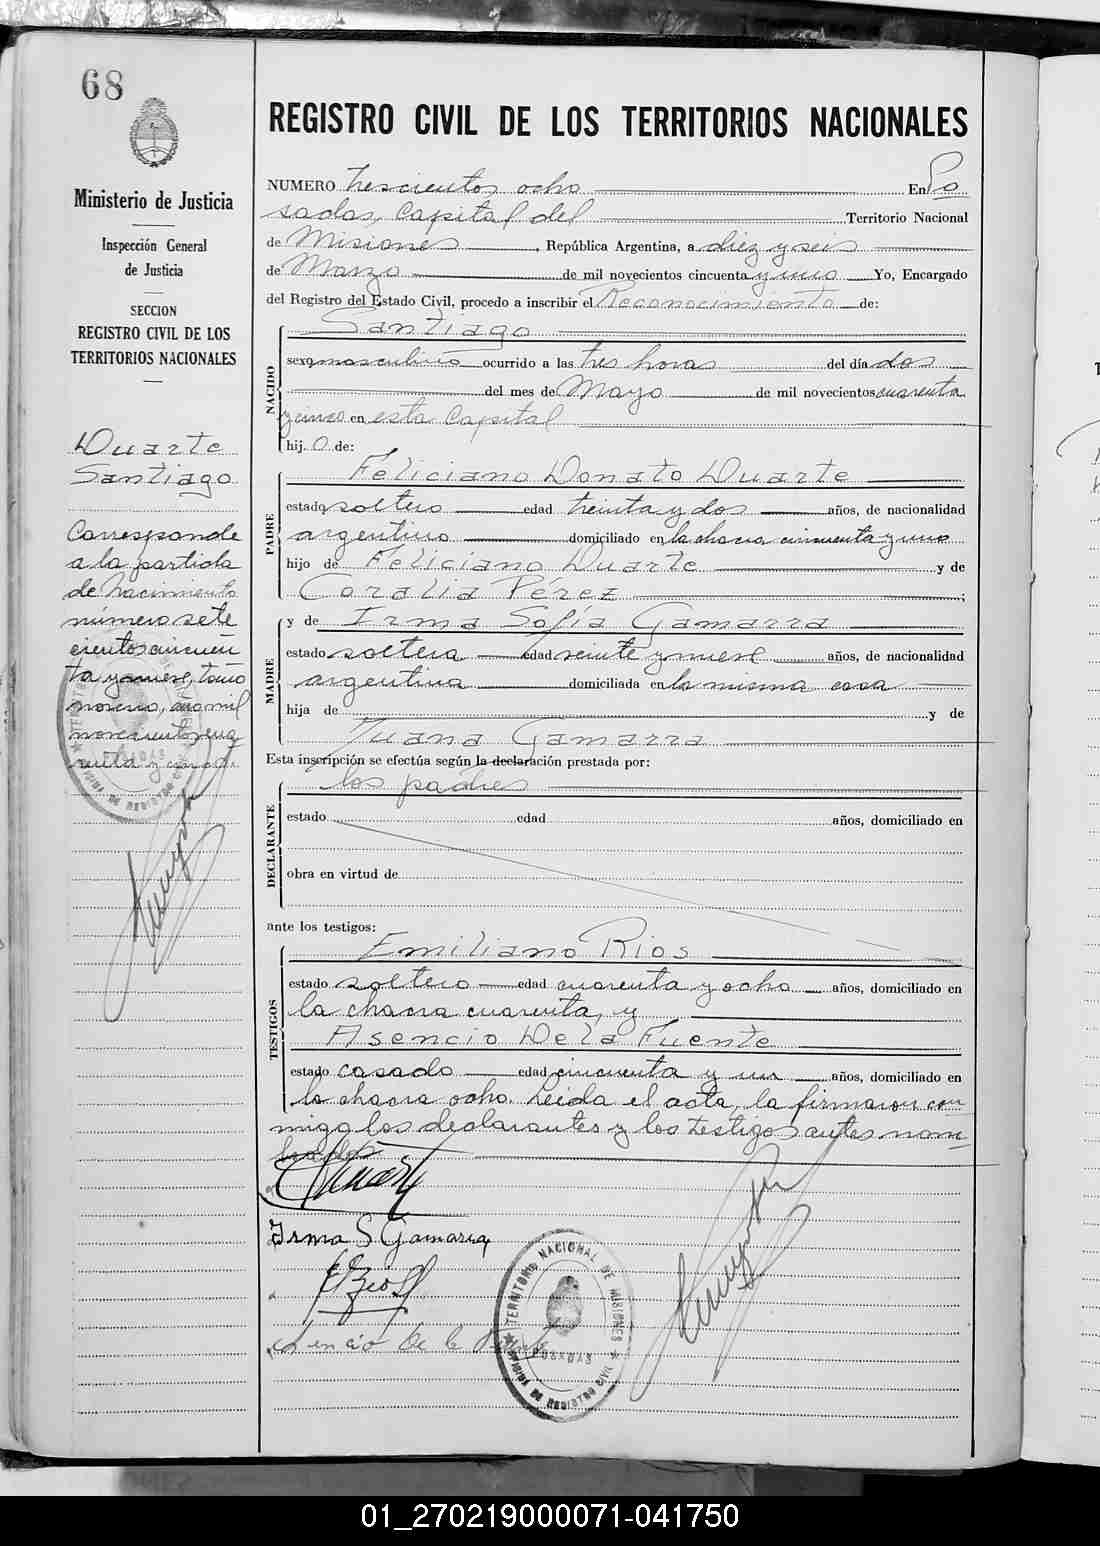 68
Ministerio de Justicia
Inspección General
de Justicia
SECCION
REGISTRO CIVIL DE LOS
TERRITORIOS NACIONALES
Duarte
Santiago
Corresponde
a la partida
de nacimiento
número sete
cientos cincuen
ta y nueve, tomo
noveno, año mil
novecientos cua
renta y cinco.
REGISTRO CIVIL DE LOS TERRITORIOS NACIONALES
NUMERO trescientos ocho En Po
sadas, Capital del Territorio Nacional
de Misiones, República Argentina, a diez y seis
de Marzo de mil novecientos cincuenta y uno Yo, Encargado
del Registro del Estado Civil, procedo a inscribir el Reconocimiento de:
NACIDO
Santiago
sexo masculino ocurrido a las tres horas del día dos
del mes de Mayo de mil novecientos cuarenta
y cinco en esta Capital
hij.o de:
PADRE
Feliciano Donato Duarte
estado soltero edad treinta y dos años, de nacionalidad
argentino domiciliado en la chacra cincuenta y uno
hijo de Feliciano Duarte y de
Coralia Pérez;
MADRE
y de Irma Sofía Gamarra
estado soltera edad veinte y nueve años, de nacionalidad
argentina domiciliada en la misma casa
hija de y de
Juana Gamarra
Esta inscripción se efectúa según la declaración prestada por:
los padres
DECLARANTE
estado edad años, domiciliado en
obra en virtud de
ante los testigos:
TESTIGOS
Emiliano Rios
estado soltero edad cuarenta y ocho años, domiciliado en
la chacra cuarenta, y
Asencio De la Fuente
estado casado edad cincuenta y un años, domiciliado en
la chacra ocho. Leída el acta, la firmaron con
migo los declarantes y los testigos antes nom
brados
Irma S Gamarra
E Rios
Asencio De la Fuente
TERRITORIO NACIONAL DE MISIONES
POSADAS
OFICINA DE REGISTRO CIVIL
01_270219000071-041750